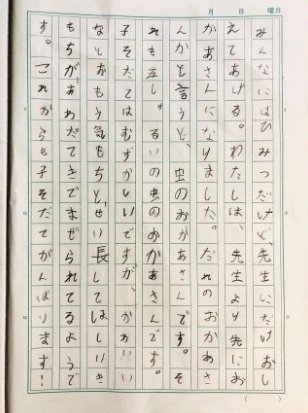 月 日 曜日
みんなにはひみつだけど、先生にだけおし
えてあげる。わたしは、先生より先にお
かあさんになりました。だれのおかあさ
んかと言うと、虫のおかあさんです。そ
れも五しゅるいの虫のおかあさんです。
子そだてはむずかしいですが、かわいい
なとおもう気もちと、せい長してほしい気
もちが、あわだてきでまぜられてるようで
す。これからも子そだてがんばります!